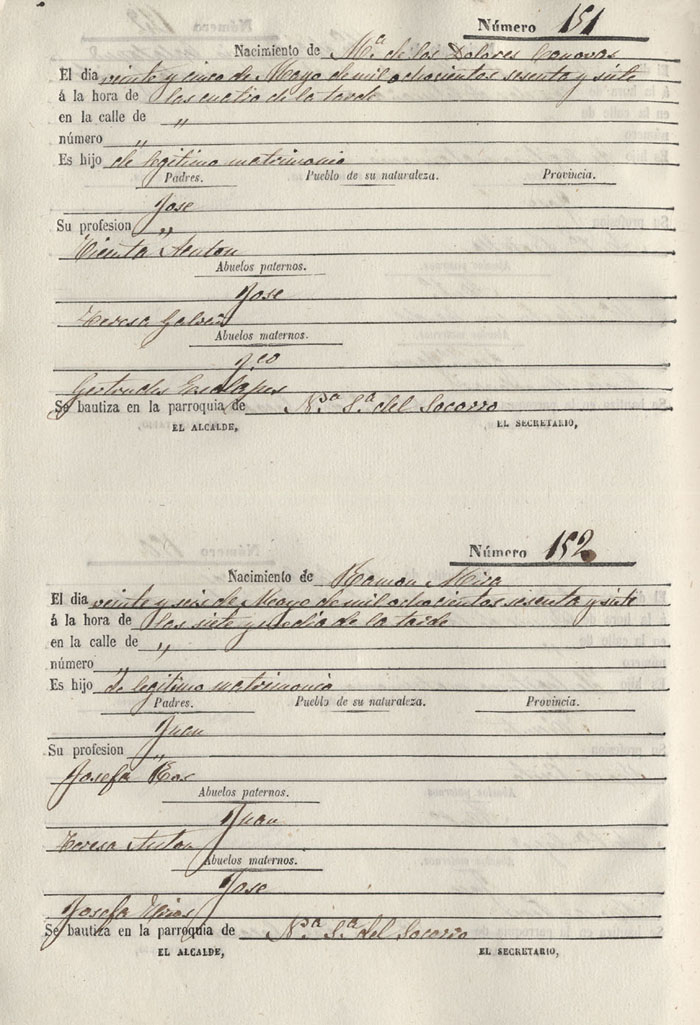 Número 151
Nacimiento de Mª de los Dolores Canovas
El dia veinte y cinco de Mayo de mil ochocientos sesenta y siete
á la hora de las cuatro de la tarde
en la calle de "
número "
Es hijo de legitimo matrimonio
Padres. Pueblo de su naturaleza. Provincia.
Jose
Su profesion "
Vicenta Anton
Abuelos paternos.
Jose
Teresa
Abuelos maternos.
Fco
Gertrudis
Se bautiza en la parroquia de Nra Sª del Socorro
EL ALCALDE, EL SECRETARIO,
Número 152
Nacimiento de Ramon Mira
El dia veinte y seis de Mayo de mil ochocientos sesenta y siete
á la hora de las siete y media de la tarde
en la calle de "
número "
Es hijo de legitimo matrimonio
Padres. Pueblo de su naturaleza. Provincia.
Juan
Su profesion "
Josefa
Abuelos paternos.
Juan
Teresa Anton
Abuelos maternos.
Jose
Josefa
Se bautiza en la parroquia de Nra Sª del Socorro
EL ALCALDE, EL SECRETARIO,